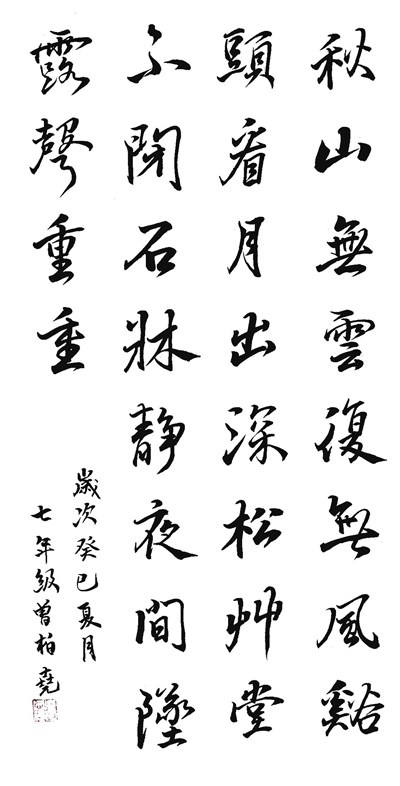 秋山無雲復無風谿
頭看月出深松艸堂
不閉石牀靜夜間墜
露聲重重
歲次癸巳夏月
七年級曾柏堯